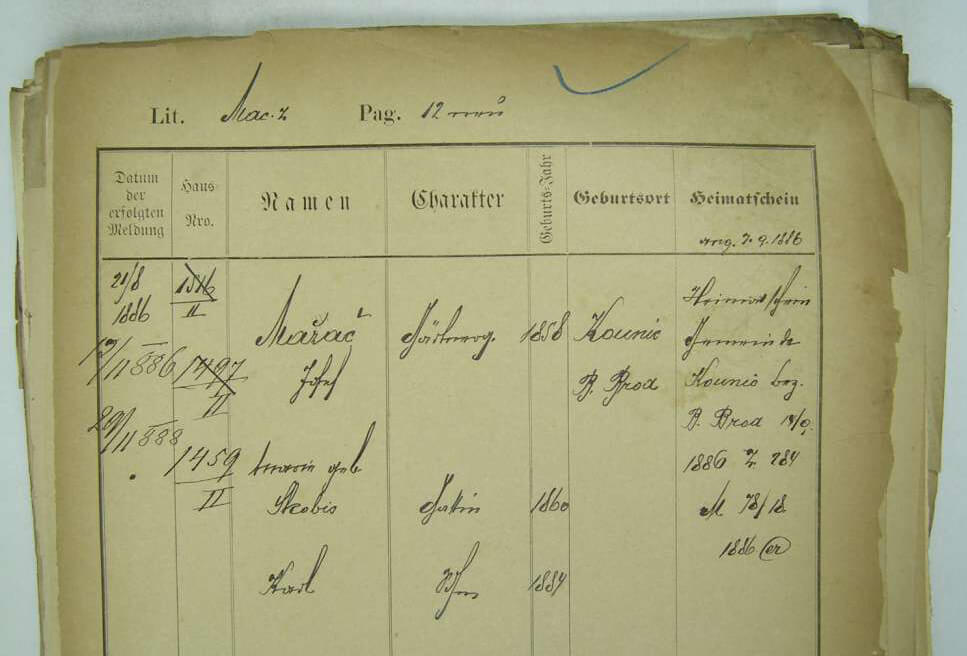 Lit. Mac. z Pag. 12 neu
Datum
der
erfolgten
Meldung
Haus-
Nro.
Namen
Charakter
Geburts-Jahr
Geburtsort
Heimatschein
ang. 7. 9. 1886
21/8
1886
1516
II
Mařač
Josef
1858
Kounic
B. Brod
Heimatschein
Gemeinde
Kounic bez.
B. Brod 18/9.
1886 Z 284
M 78/18
1886
12/11 886
1497
II
29/11 888
1459
II
Marie geb
Skobis
Gattin
1860
Karl
Sohn
1884